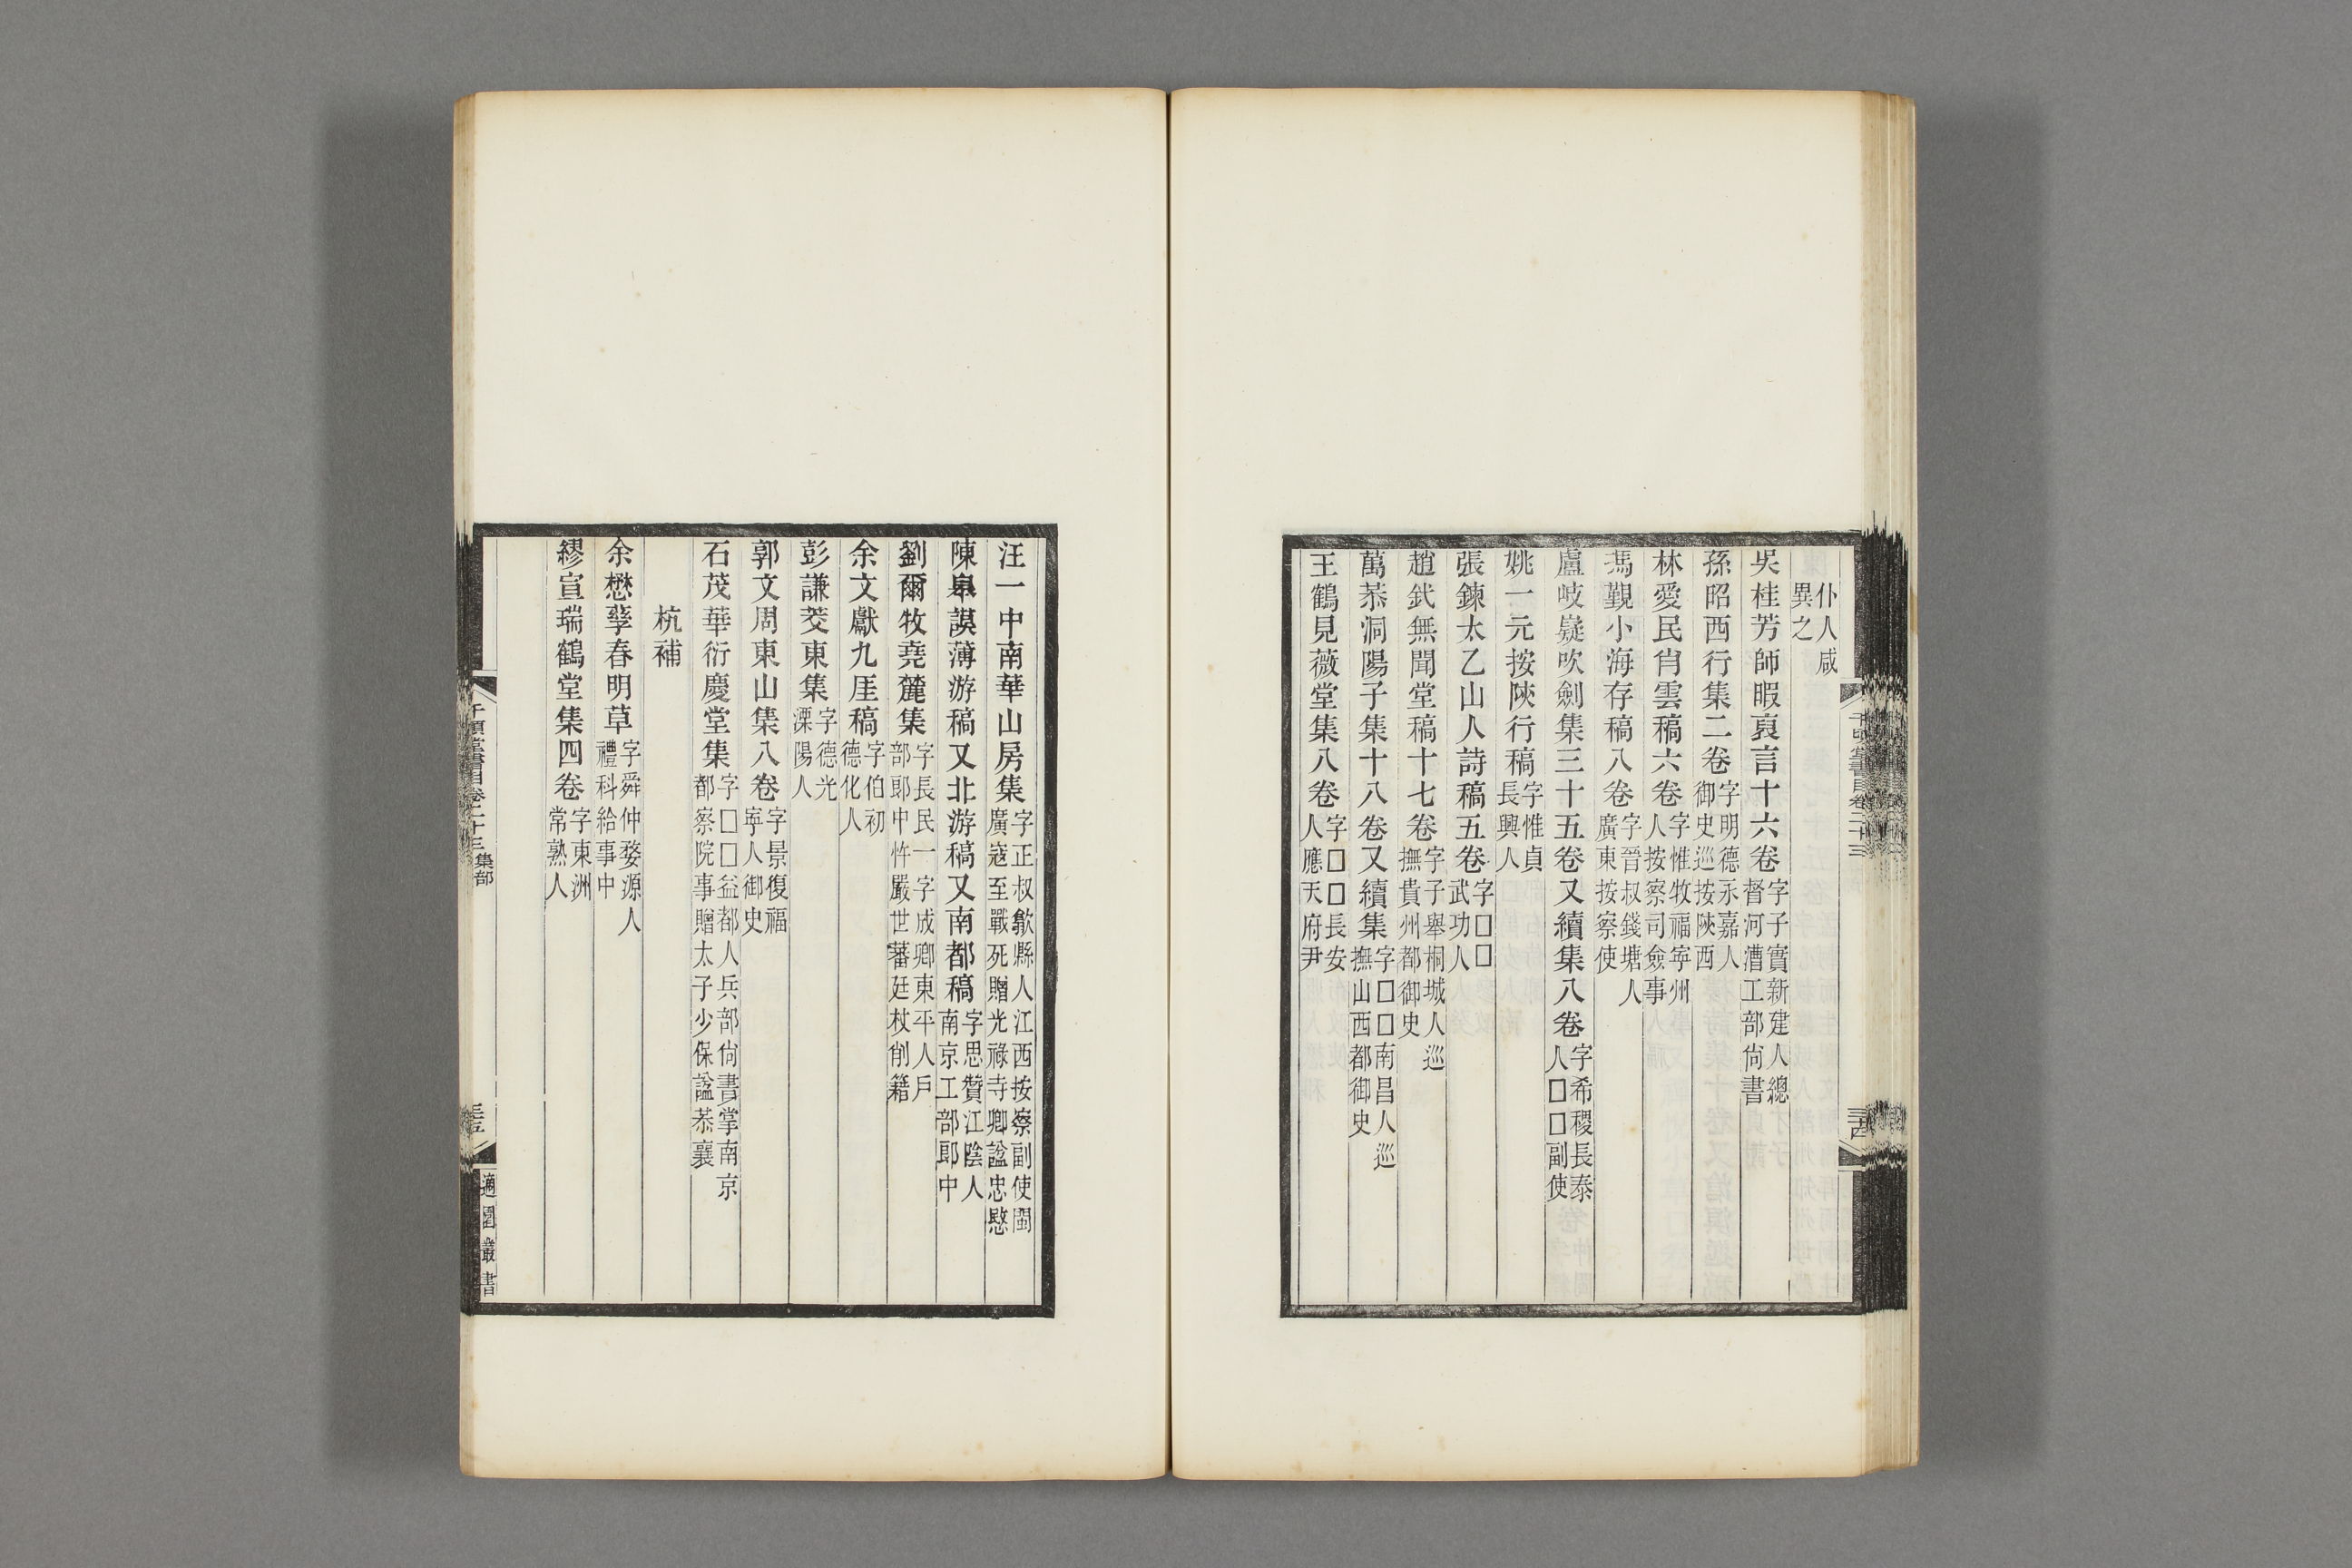 仆人咸異之
吳桂芳師暇裒言十六卷字子實新建人總督河漕工部尙書
孫昭西行集二卷字明德永嘉人御史巡按陝西
林愛民肖雲稿六卷字惟牧福寧州人按察司僉事
馮觀小海存稿八卷字晉叔錢塘人廣東按察使
盧岐嶷吹劍集三十五卷又續集八卷字希稷長泰人□□副使
姚一元按陝行稿字惟貞長興人
張鍊太乙山人詩稿五卷字□□武功人
趙釴無聞堂稿十七卷字子舉桐城人巡撫貴州都御史
萬恭洞陽子集十八卷又續集字□□南昌人巡撫山西都御史
王鶴見薇堂集八卷字□□長安人應天府尹
千頃堂書目卷二十三
三十四
汪一中南華山房集字正叔歙縣人江西按察副使閩廣寇至戰死贈光祿寺卿諡忠愍
陳皐謨薄游稿又北游稿又南都稿字思贊江陰人南京工部郎中
劉爾牧堯麓集字長民一字成卿東平人戶部郎中忤嚴世蕃廷杖削籍
余文獻九厓稿字伯初德化人
彭謙茭東集字德光溧陽人
郭文周東山集八卷字景復福寧人御史
石茂華衍慶堂集字□□益都人兵部尙書掌南京都察院事贈太子少保諡恭襄
杭補
余懋孳春明草字舜仲婺源人禮科給事中
繆宣瑞鶴堂集四卷字東洲常熟人
千頃堂書目卷二十三集部
三十五
適園叢書